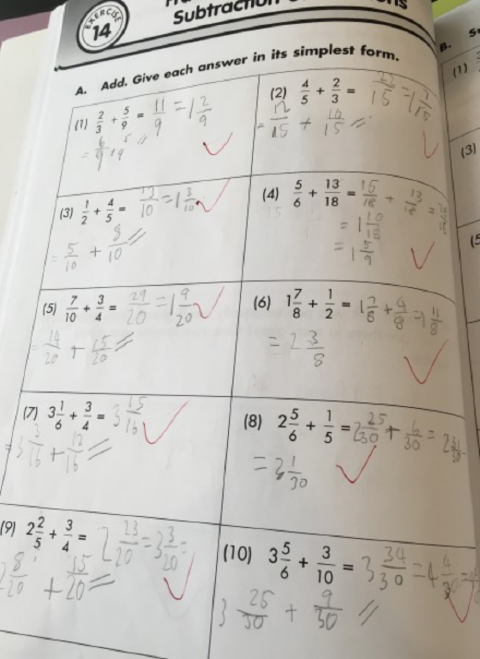 EXERCISE 14
Subtraction
A. Add. Give each answer in its simplest form.
(1) 2/3 + 5/9 = 11/9 = 1 2/9
= 6/9 + 5/9 //
(2) 4/5 + 2/3 = 22/15 = 1 7/15
= 12/15 + 10/15 //
(3) 1/2 + 4/5 = 13/10 = 1 3/10
= 5/10 + 8/10 //
(4) 5/6 + 13/18 = 15/18 + 13/18 =
= 1 10/18
= 1 5/9
(5) 7/10 + 3/4 = 29/20 = 1 9/20
= 14/20 + 15/20 //
(6) 1 7/8 + 1/2 = 1 7/8 + 4/8 = 1 11/8
= 2 3/8
(7) 3 1/6 + 3/4 = 3 15/16
= 3 3/16 + 12/16 //
(8) 2 5/6 + 1/5 = 2 25/30 + 6/30 = 2 31/30
= 3 1/30
(9) 2 2/5 + 3/4 = 2 23/20 = 3 3/20 =
2 8/20 + 15/20 //
(10) 3 5/6 + 3/10 = 3 34/30 = 4 4/30 =
3 25/30 + 9/30 //
B.
(1)
(3)